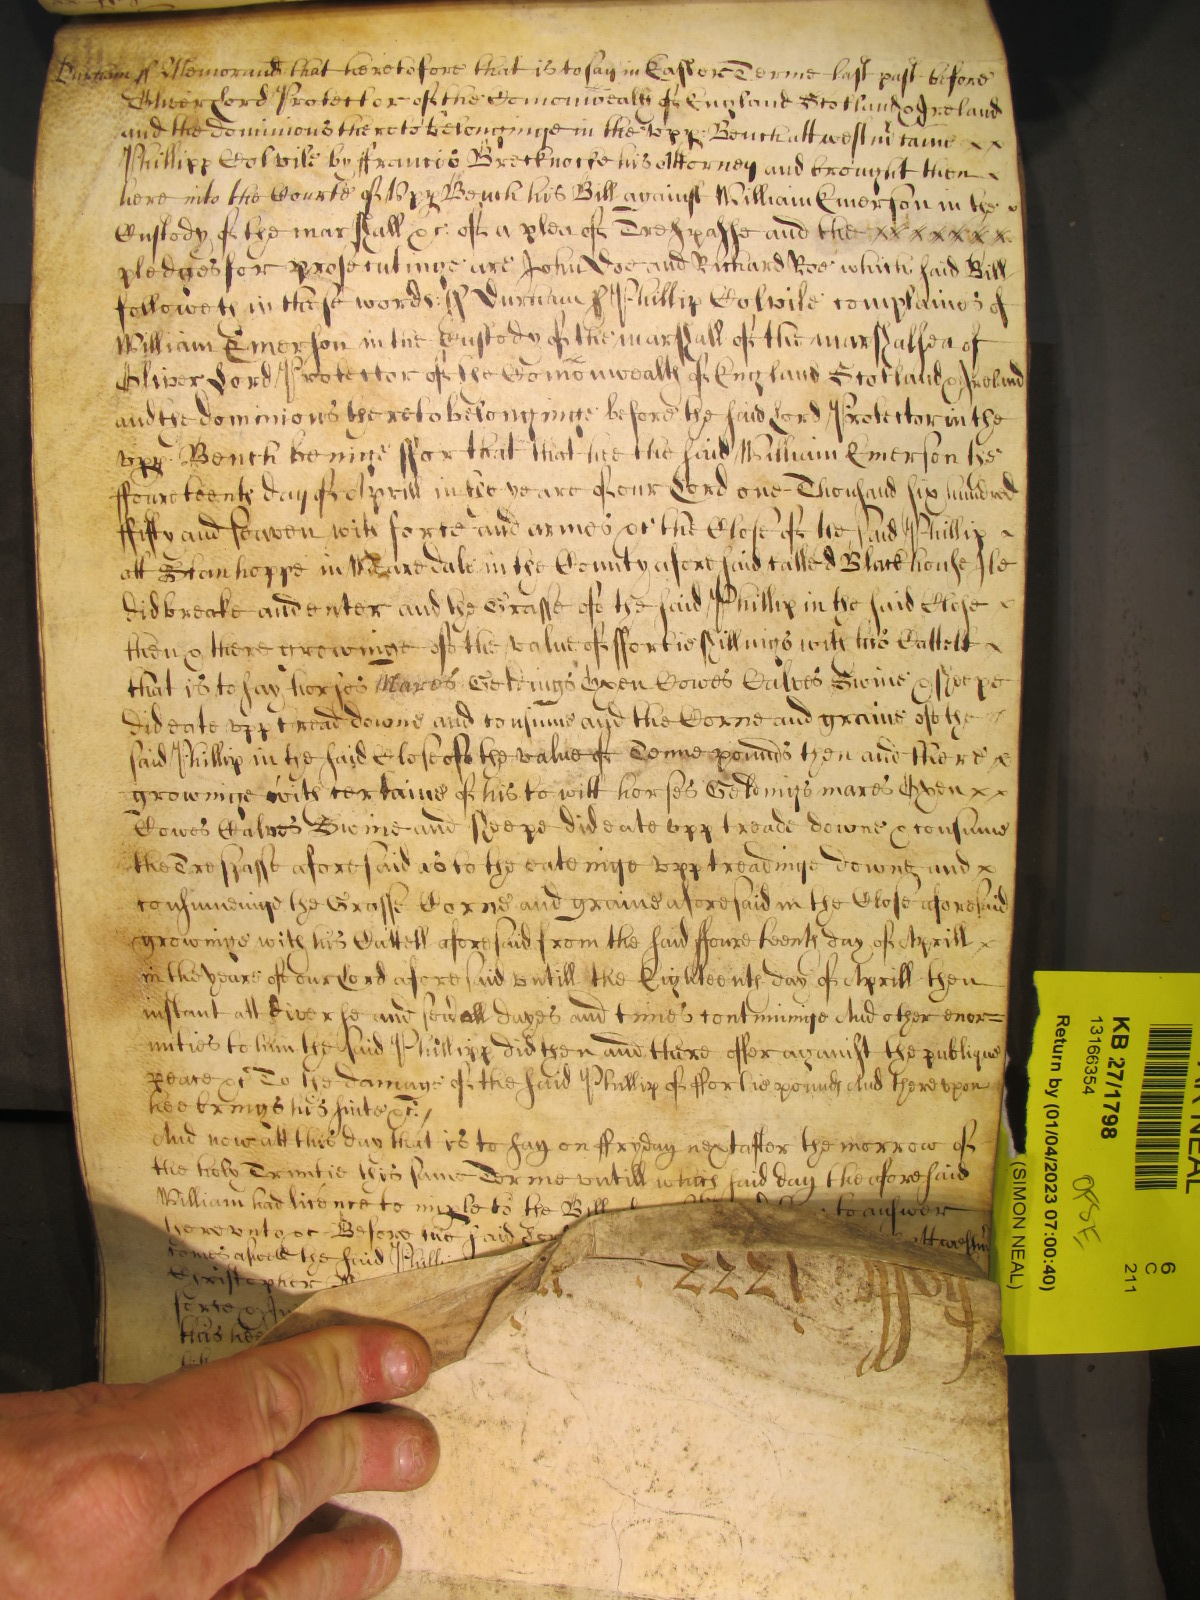 Durham ss Memorand that heretofore that is to say in Easter Terme last past before
Oliver Lord Protector of the Comonwealth of England Scotland & Ireland
and the dominions thereto belonginge in the upp: Bench att westm came x x
Phillipp Colvile by ffrancis Brecknocke his Attorney and brought then x
here into the Courte of Upp Bench his Bill against William Emerson in the x
Custody of the marshall &c: of a plea of Trespasse and the x x x x x x x
pledges for prosecutinge are John Doe and Richard Roe which said Bill
followeth in these words: ss Durham ss Phillip Colvile complaines of
William Emerson in the Custody of the marshall of the marshalsea of
Oliver Lord Protector of the Comonwealth of England Scotland & Ireland
and the dominions thereto belonginge before the said Lord Protector in the
upp: Bench beinge ffor that that hee the said William Emerson the
ffoureteenth day of Aprill in the yeare of our Lord one Thousand six hundred
ffifty and seaven with force and armes &c the Close of the said Phillip x
att Stanhoppe in Wearedale in the County aforesaid called Blackhouse Ile
did breake and enter and the Grasse of the said Phillip in the said Close x
then & there growinge of the value of ffortie shillings with his Cattell x
that is to say horses Mares Geldings Oxen Cowes Calves Swine & sheepe
did eate upp tread downe and consume and the Corne and graine of the
said Phillip in the said Close of the value of Tenne pounds then and there x
growinge with certaine of his to witt horses Geldings mares Oxen x x
Cowes Calves Swine and sheepe did eate upp treade downe & consume
the Trespasse aforesaid as to the eateinge upp treadinge downe and x
consumeinge the Grasse Corne and graine aforesaid in the Close aforesaid
growinge with his Cattell aforesaid from the said ffoureteenth day of Aprill x
in the yeare of our Lord aforesaid untill the Eighteenth day of Aprill then
instant att diverse and sevall dayes and times continuinge And other enor=
mities to him the said Phillipp did then and there offer against the publique
peace &c To the damage of the said Phillip of ffortie pounds And thereupon
hee brings his suite &c:
And now att this day that is to say on ffryday next after the morrow of
the holy Trinitie this same Terme untill which said day the aforesaid
William had licence to imple to the Bill to answer
hereunto &c Before the said Lor att westm
comes aswell the said Philli
Christopher
this hee
KB 27/1798
13166354
Return by (01/04/2023 07:00:40)
(SIMON NEAL)
NEAL
6
C
211